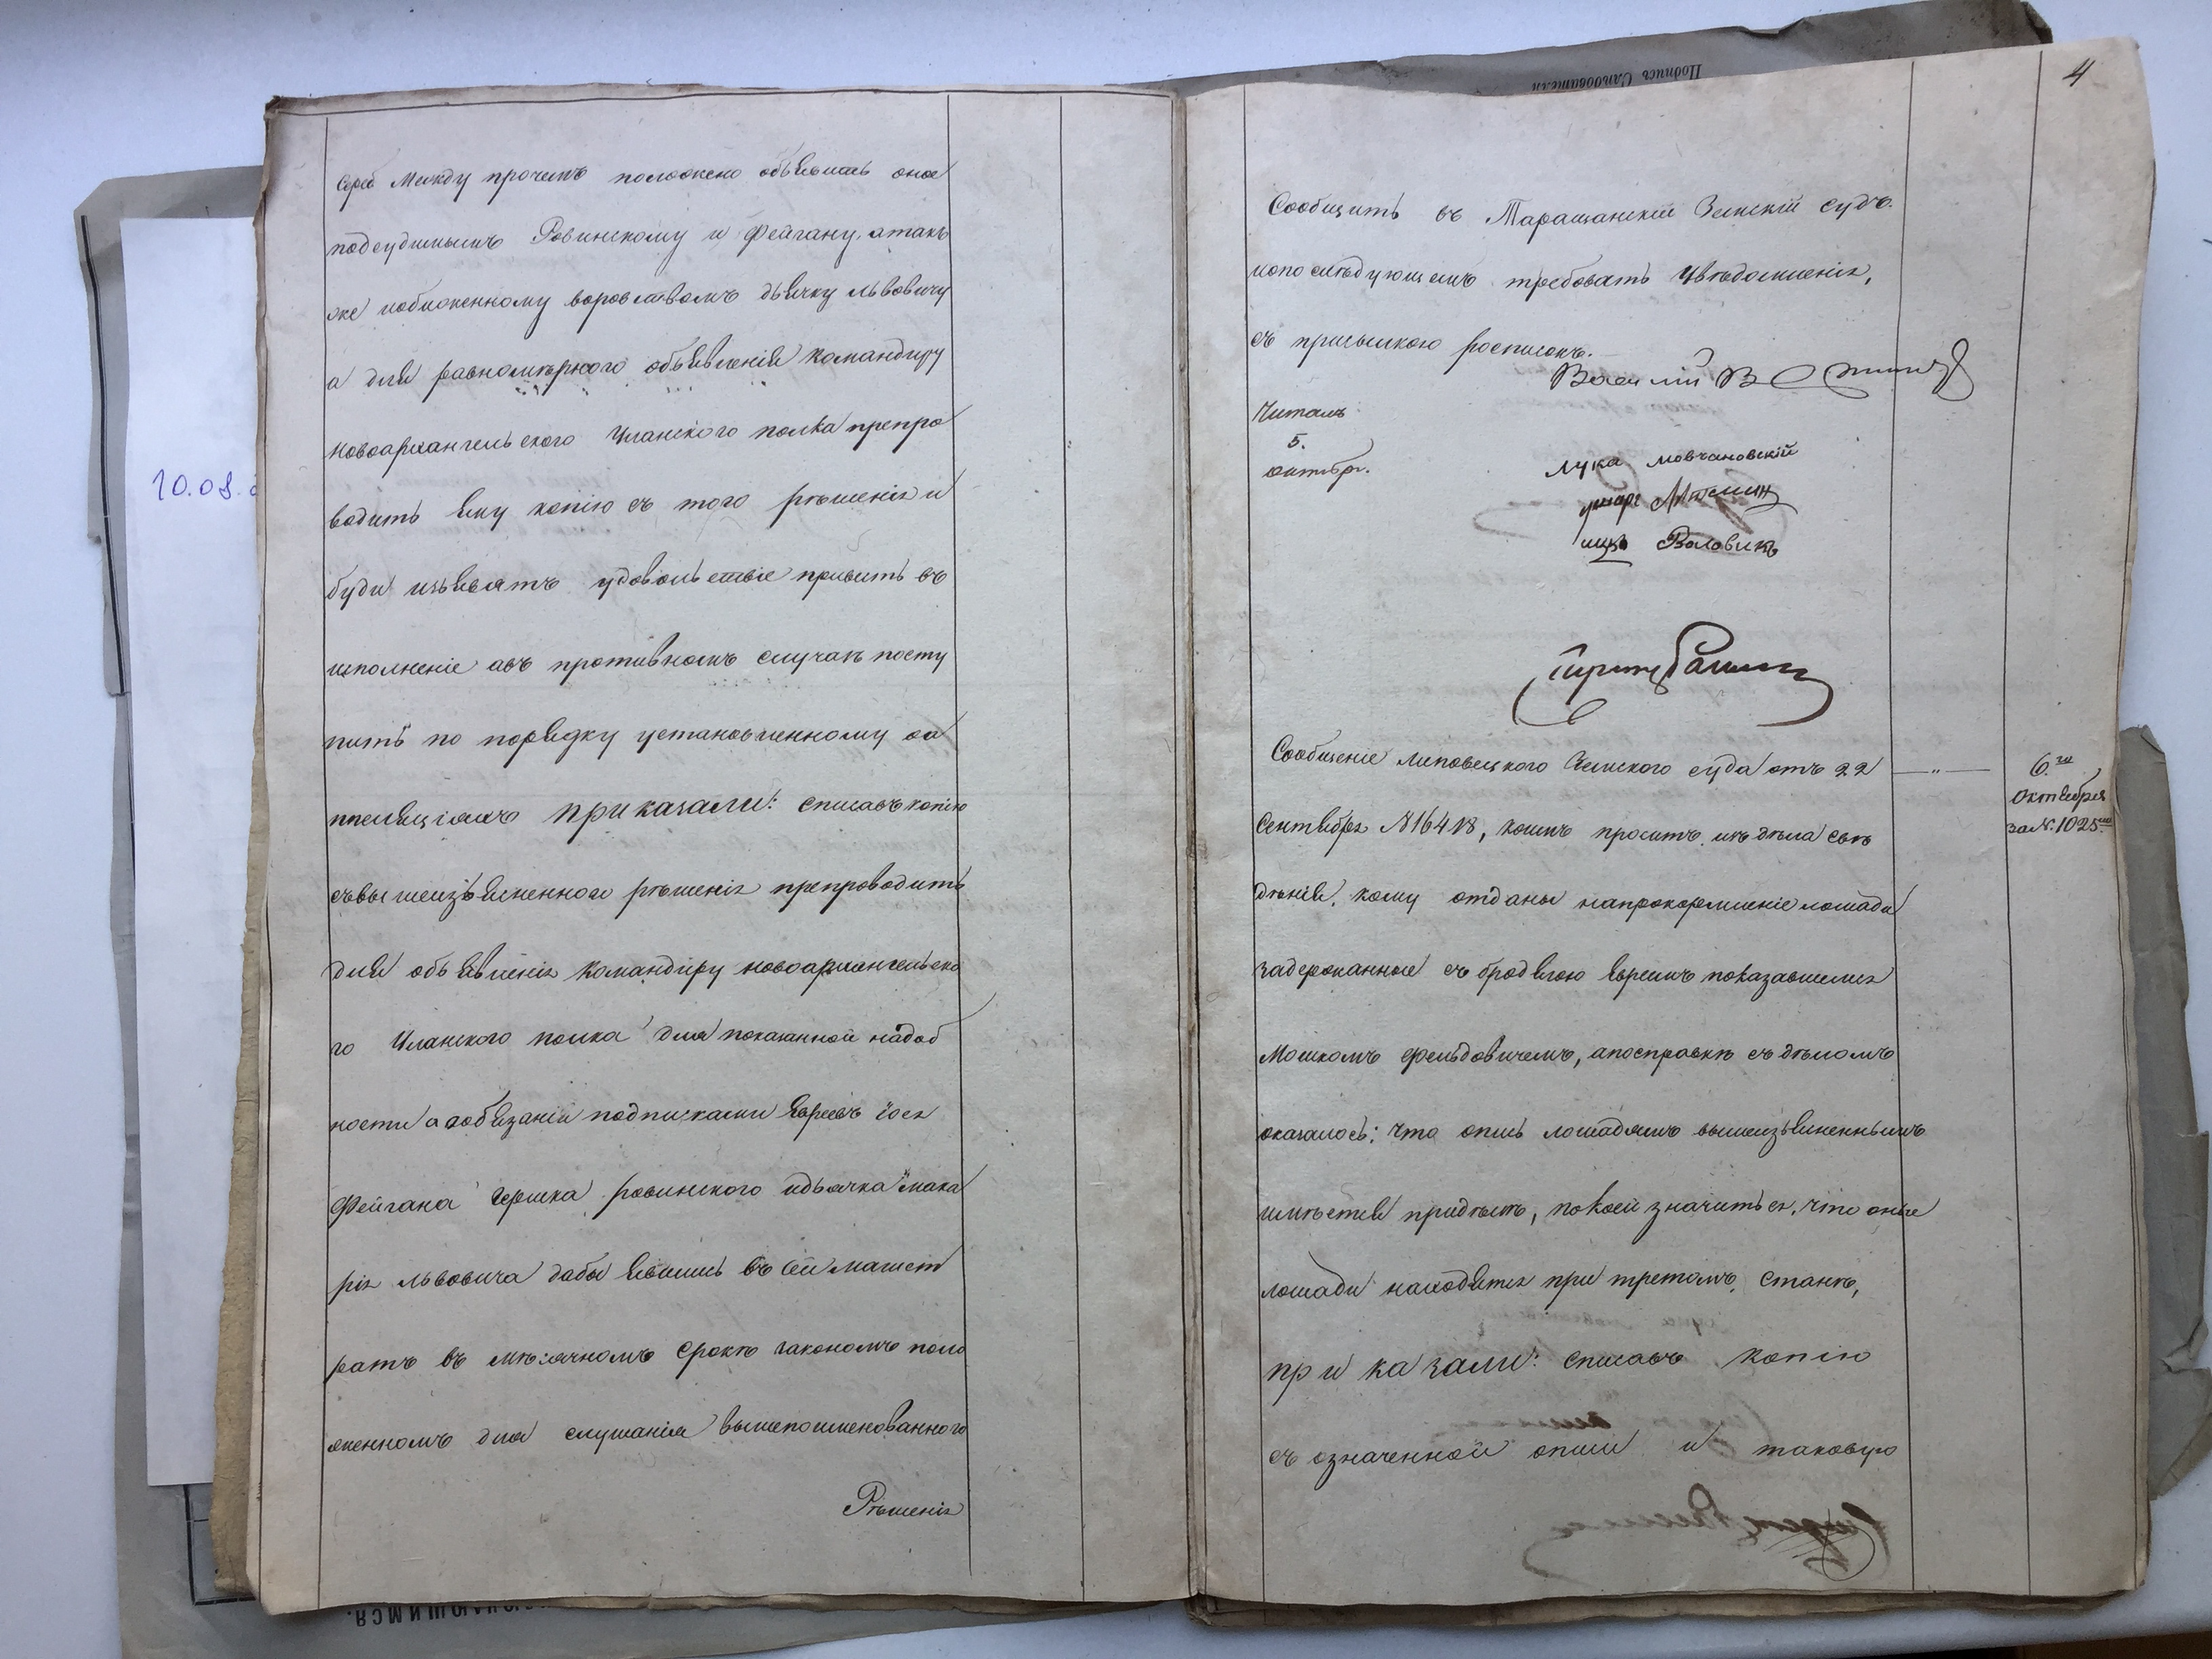 Между прочимъ положено объявить оное
подсудимымъ Ровинскому и Фейгану, атакъ
же побиженному воровствомъ дьячку Львовичу
а для равномѣрного объявленія командиру
Новоархангельского Уланского полка препро
водить ему копію съ того рѣшенія и
буди изъявятъ удовольствіе привить въ
исполненіе авъ противномъ случаѣ посту
пить по порядку установленному оа
ппеляціяхъ приказали: списавъ копію
съвышеизъясненного рѣшенія препроводить
для объявленія командиру новоархангельско
го Уланского полка для показанной надоб
ности а обязаніи подписками Евреевъ Іося
Фейгана Гершка Ровинского идьячка Мака
рія Львовича дабы явились въ сей магист
ратъ въ мѣсячномъ срокѣ закономъ поло
женномъ для слушанія вышепоименованного
Рѣшенія
4
Сообщить въ Таращанскій Земскій судъ.
ипослѣдующемъ требовать увѣдомленія,
съ присылкою росписокъ.
Василій
Читалъ
5.
октябр.
Лука Мовчановскій
Воловикъ
Сообщеніе Липовецкого Земского суда отъ 22 — „ — 6.го
Октября
за №. 1025.
Сентября №16418, коимъ проситъ изъ дѣла свѣ
дѣнія, кому отданы напрокормленіе лошади
задержанные съ бродягою Евреемъ показавшимся
Мошкомъ Фельдовичемъ, апосправкѣ съ дѣломъ
оказалось: что опись лошадямъ вышеизъясненнымъ
имѣется придѣлѣ, покоей значиться, что оные
лошади находятся при третомъ станѣ,
приказали: списавъ копію
съ означенной описи и таковую
Подпись Слѣдователя